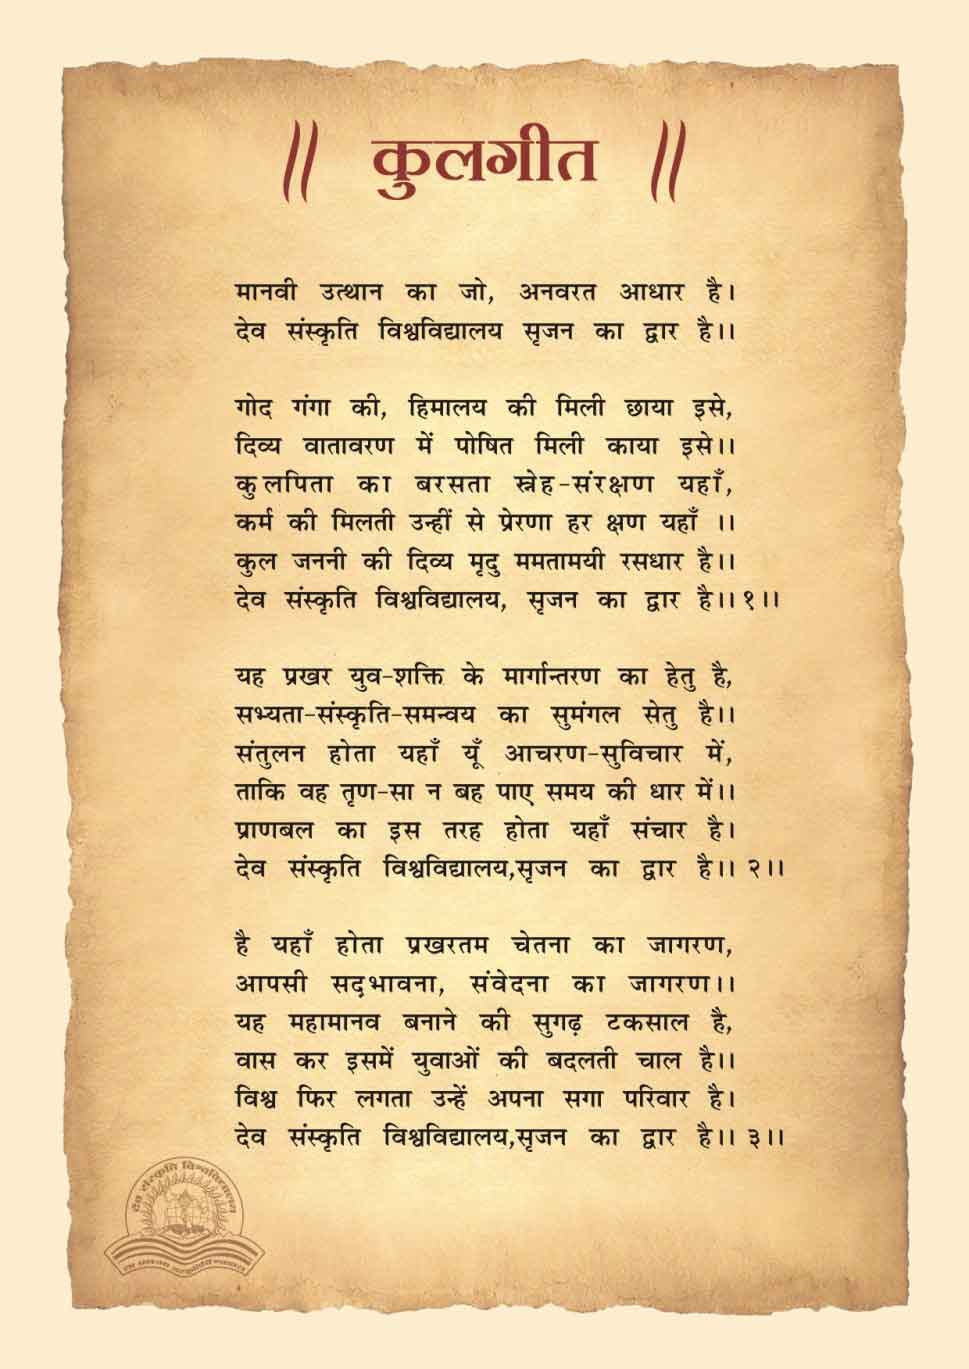 ॥ कुलगीत ॥
मानवी उत्थान का जो, अनवरत आधार है।
देव संस्कृति विश्वविद्यालय सृजन का द्वार है।।
गोद गंगा की, हिमालय की मिली छाया इसे,
दिव्य वातावरण में पोषित मिली काया इसे।।
कुलपिता का बरसता स्नेह-संरक्षण यहाँ,
कर्म की मिलती उन्हीं से प्रेरणा हर क्षण यहाँ ।।
कुल जननी की दिव्य मृदु ममतामयी रसधार है।।
देव संस्कृति विश्वविद्यालय, सृजन का द्वार है।। १।।
यह प्रखर युव-शक्ति के मार्गान्तरण का हेतु है,
सभ्यता-संस्कृति-समन्वय का सुमंगल सेतु है।।
संतुलन होता यहाँ यूँ आचरण-सुविचार में,
ताकि वह तृण-सा न बह पाए समय की धार में।।
प्राणबल का इस तरह होता यहाँ संचार है।
देव संस्कृति विश्वविद्यालय,सृजन का द्वार है।। २।।
है यहाँ होता प्रखरतम चेतना का जागरण,
आपसी सद्भावना, संवेदना का जागरण।।
यह महामानव बनाने की सुगढ़ टकसाल है,
वास कर इसमें युवाओं की बदलती चाल है।।
विश्व फिर लगता उन्हें अपना सगा परिवार है।
देव संस्कृति विश्वविद्यालय,सृजन का द्वार है।। ३।।
देव संस्कृति विश्वविद्यालय